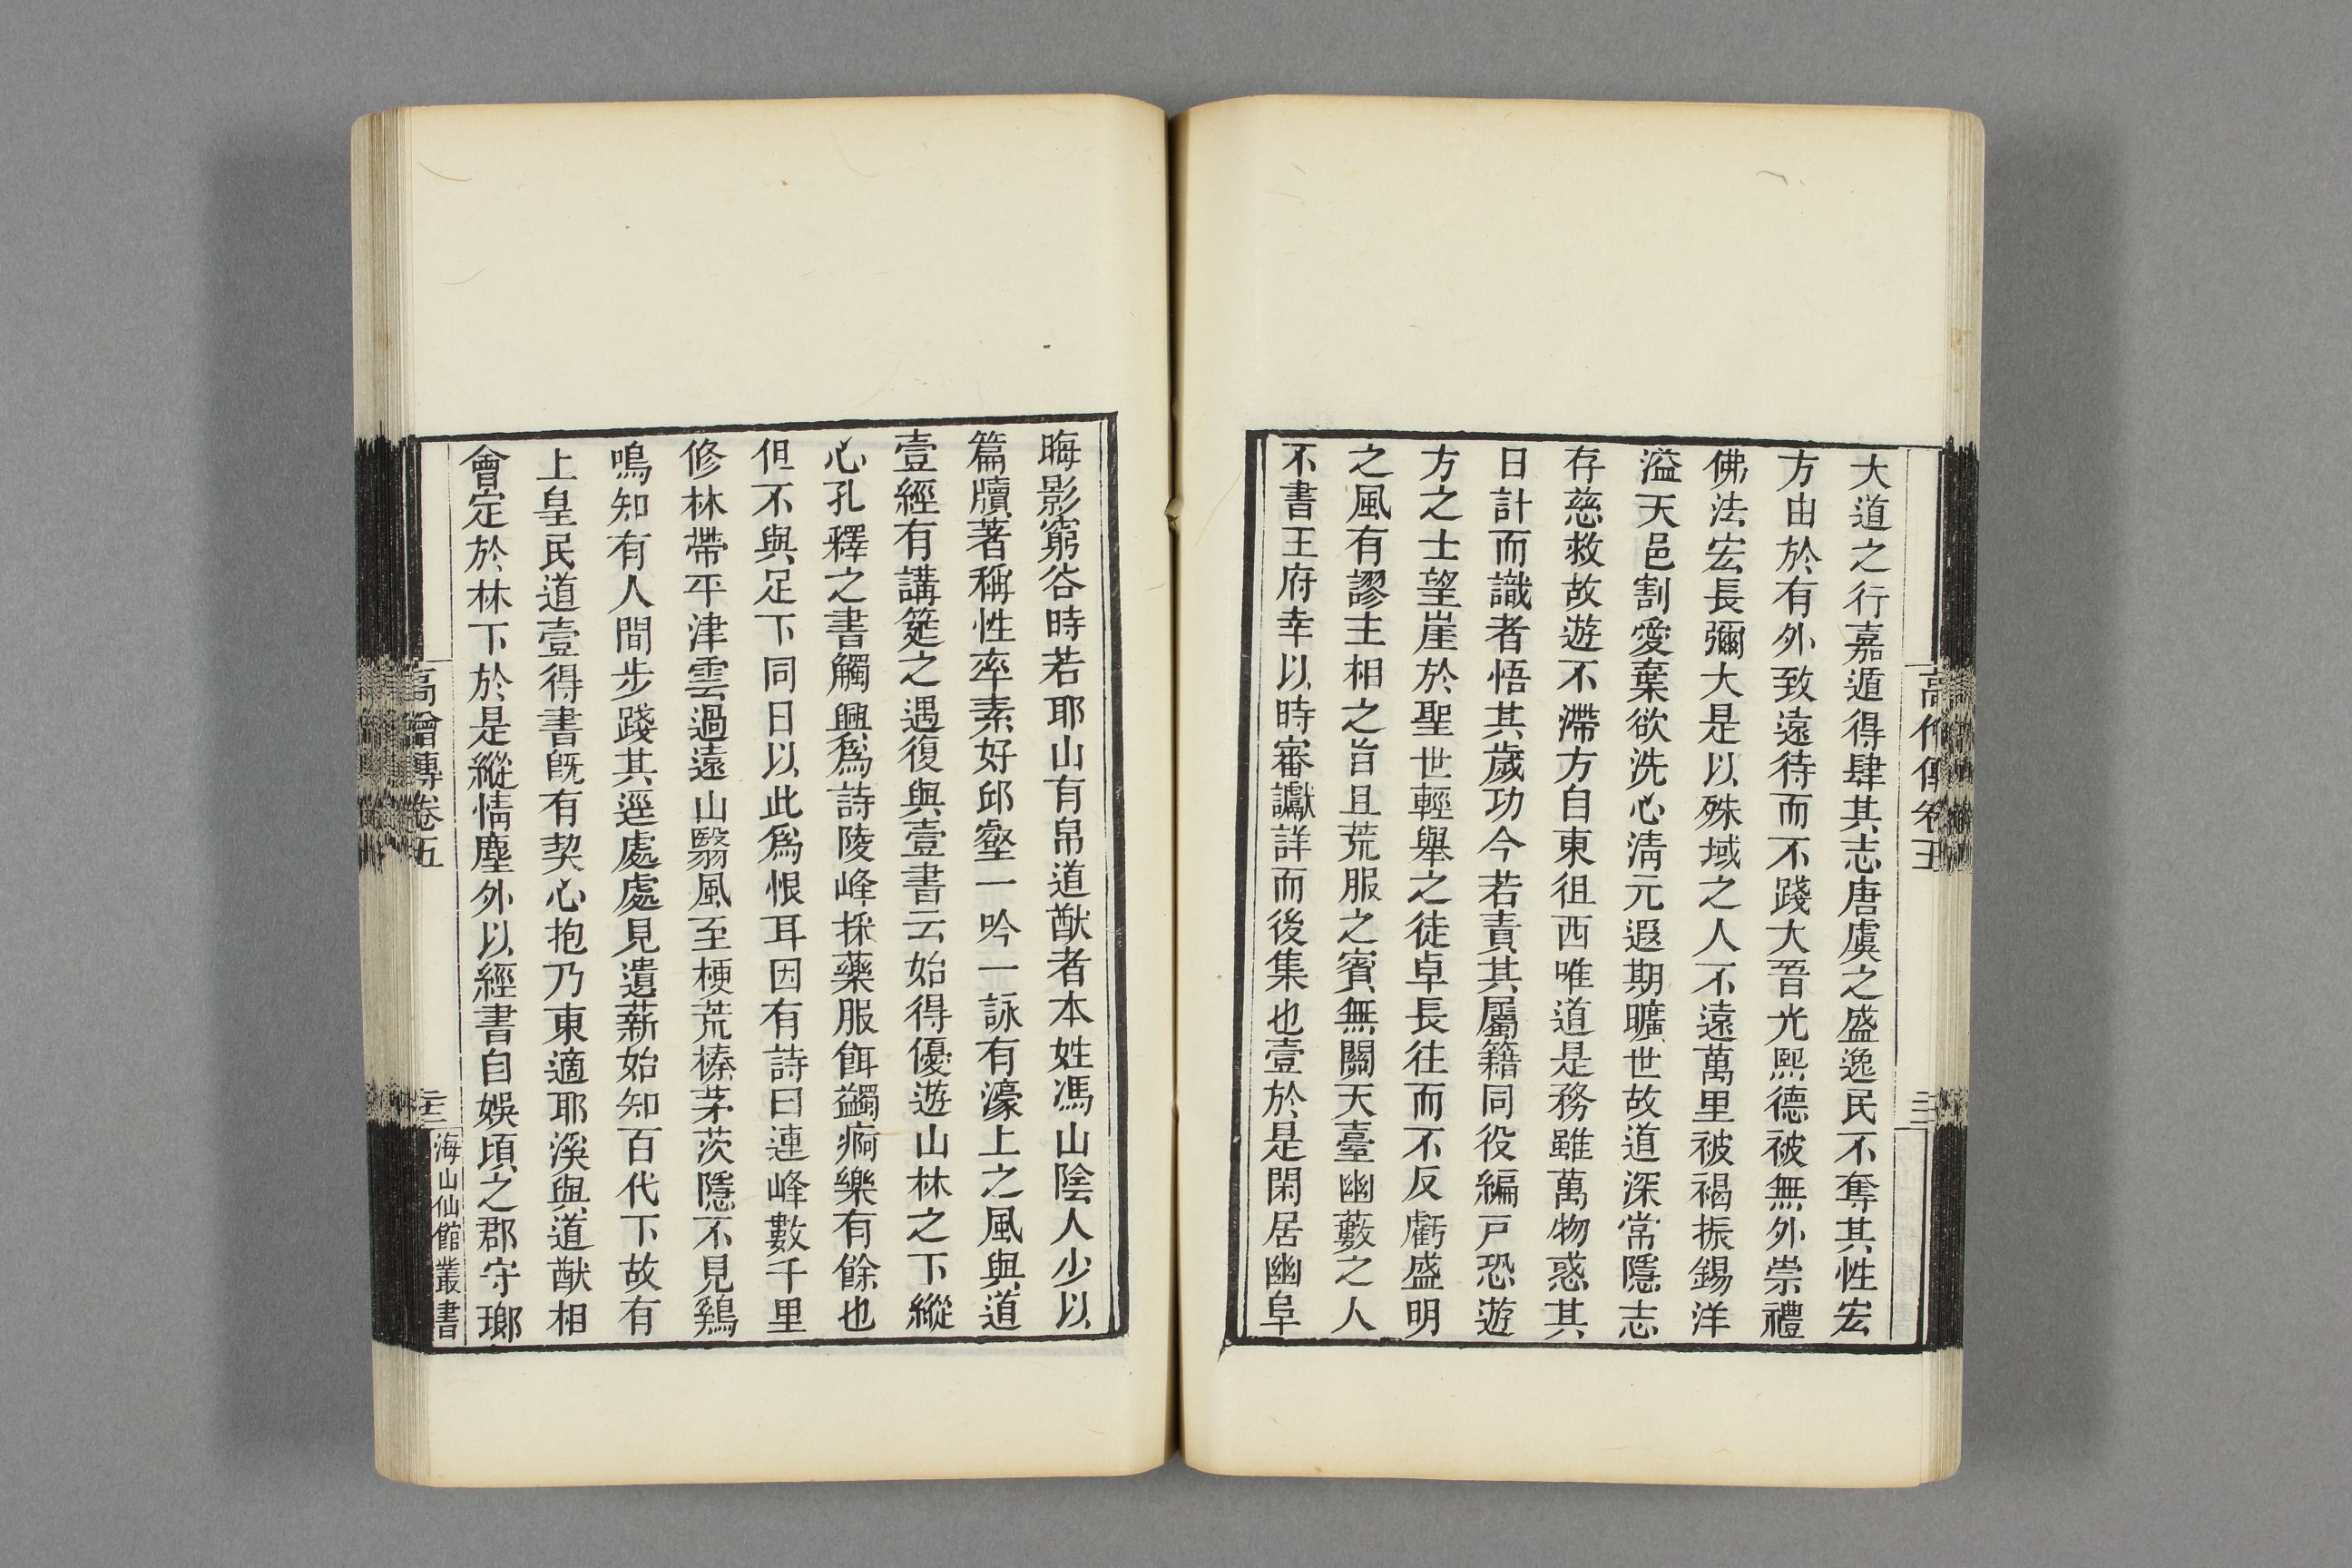 大道之行嘉遁得肆其志唐虞之盛逸民不奪其性宏
方由於有外致遠待而不踐大晉光熙德被無外崇禮
佛法宏長彌大是以殊域之人不遠萬里被褐振錫洋
溢天邑割愛棄欲洗心清元遐期曠世故道深常隱志
存慈救故遊不滯方自東徂西唯道是務雖萬物惑其
日計而識者悟其歲功今若責其屬籍同役編戸恐遊
方之士望崖於聖世輕舉之徒卓長往而不反虧盛明
之風有謬主相之旨且荒服之賓無關天臺幽藪之人
不書王府幸以時審讞詳而後集也壹於是閑居幽阜
晦影窮谷時若耶山有帛道猷者本姓馮山陰人少以
篇牘著稱性率素好邱壑一吟一詠有濠上之風與道
壹經有講筵之遇復與壹書云始得優遊山林之下縱
心孔釋之書觸興爲詩陵峰採藥服餌蠲痾樂有餘也
但不與足下同日以此爲恨耳因有詩曰連峰數千里
修林帶平津雲過遠山翳風至梗荒榛茅茨隱不見鷄
鳴知有人間步踐其逕處處見遺薪始知百代下故有
上皇民道壹得書旣有契心抱乃東適耶溪與道猷相
會定於林下於是縱情塵外以經書自娛頃之郡守瑯
高僧傳卷五
海山仙館叢書